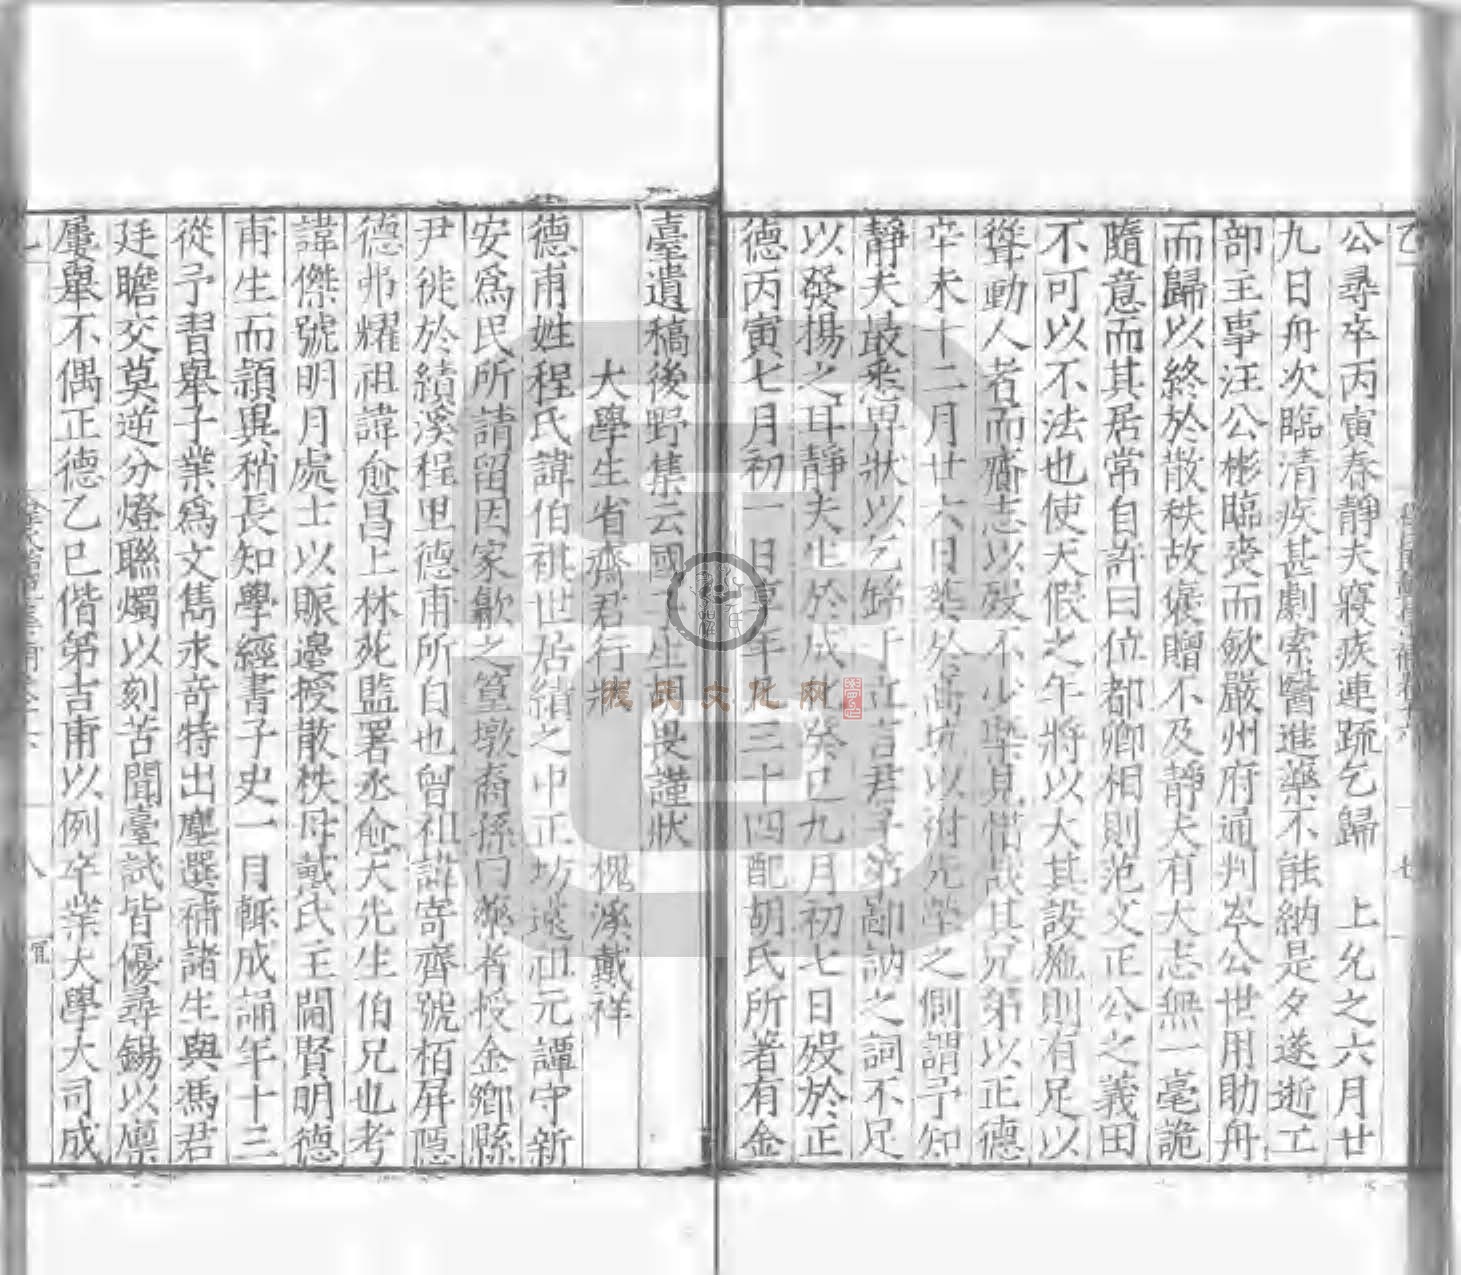 公尋卒丙寅春靜夫寢疾連疏乞歸　上允之六月廿
九日舟次臨清疾甚劇索醫進藥不能納是夕遂逝工
部主事汪公彬臨喪而歛嚴州府通判岑公世用助舟
而歸以終於散秩故褒贈不及靜夫有大志無一毫詭
隨意而其居常自許曰位都卿相則范文正公之義田
不可以不法也使天假之年將以大其設施則有足以
聳動人者而齎志以歿不少槩見惜哉其兄第以正德
辛未十二月廿六日葬於高坑以祔先塋之側謂予知
靜夫最悉畀狀以乞銘于立言君子第鄙訥之詞不足
以發揚之耳靜夫生於成化癸巳九月初七日歿於正
德丙寅七月初一日享年三十四配胡氏所著有金
臺遺稿後野集云國子生胡畏謹狀
大學生省齋君行狀　槐溪戴祥
德甫姓程氏諱伯祺世居績之中正坊遠祖元譚守新
安爲民所請留因家歙之篁墩裔孫曰藥者授金鄉縣
尹徙於績溪程里德甫所自也曾祖諱寄齊號栢屏隱
德弗耀祖諱愈昌上林苑監署丞愈大先生伯兄也考
諱傑號明月處士以賑邊授散秩母戴氏主閫賢明德
甫生而穎異稍長知學經書子史一月輒成誦年十三
從予習舉子業爲文雋永奇特出塵選補諸生與馮君
廷瞻交莫逆分燈聯燭以刻苦聞臺試皆優尋錫以廩
屢舉不偶正德乙巳偕第吉甫以例卒業大學大司成
程氏文化网